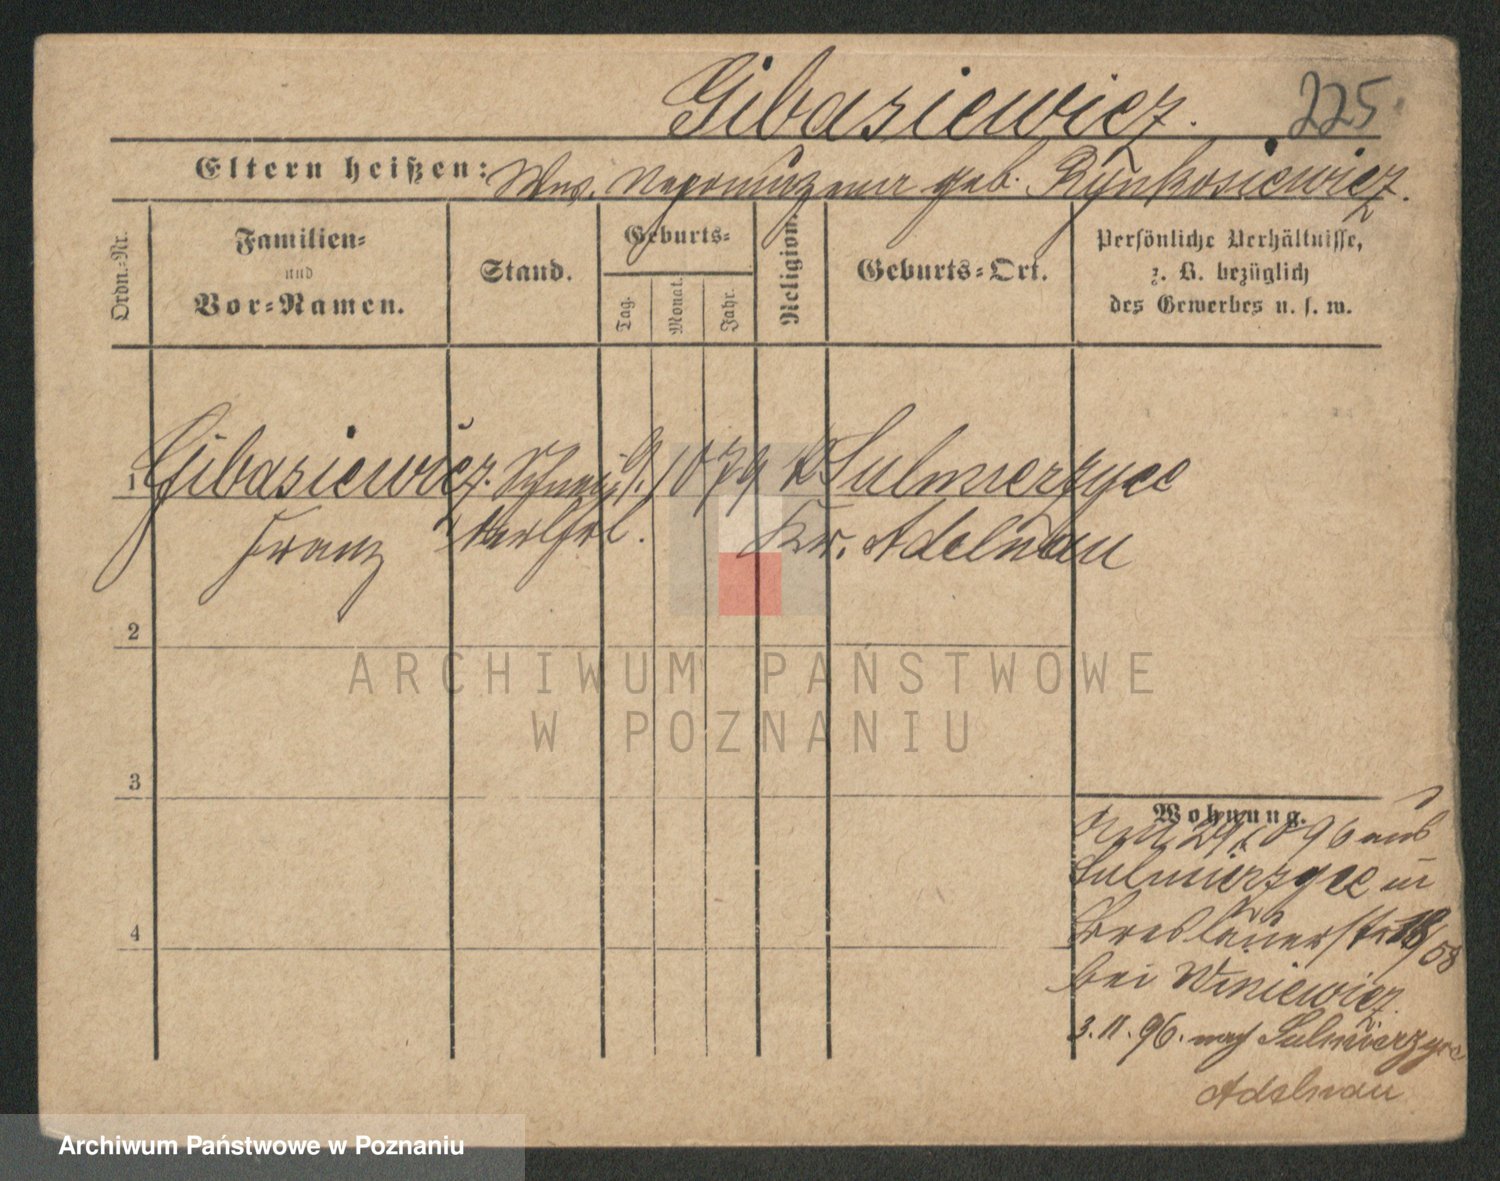 Gibasiewicz.
225.
Eltern heißen: Wwe. Nepomuzena geb. Rynkosiewicz.
Ordn.-Nr.
Familien-
und
Vor-Namen.
Stand.
Geburts-
Tag.
Monat.
Jahr.
Religion.
Geburts-Ort.
Persönliche Verhältnisse,
z. B. bezüglich
des Gewerbes u. s. w.
1 Gibasiewicz. 9. 10 79 k Sulmierzyce
Franz Kr. Adelnau
2
ARCHIWUM PAŃSTWOWE
W POZNANIU
3
Wohnung.
29/10 96 aus
Sulmierzyce in
Breslauerstr. 18/58
bei Winiewicz.
3.11.96. nach Sulmierzyce
Adelnau
4
Archiwum Państwowe w Poznaniu